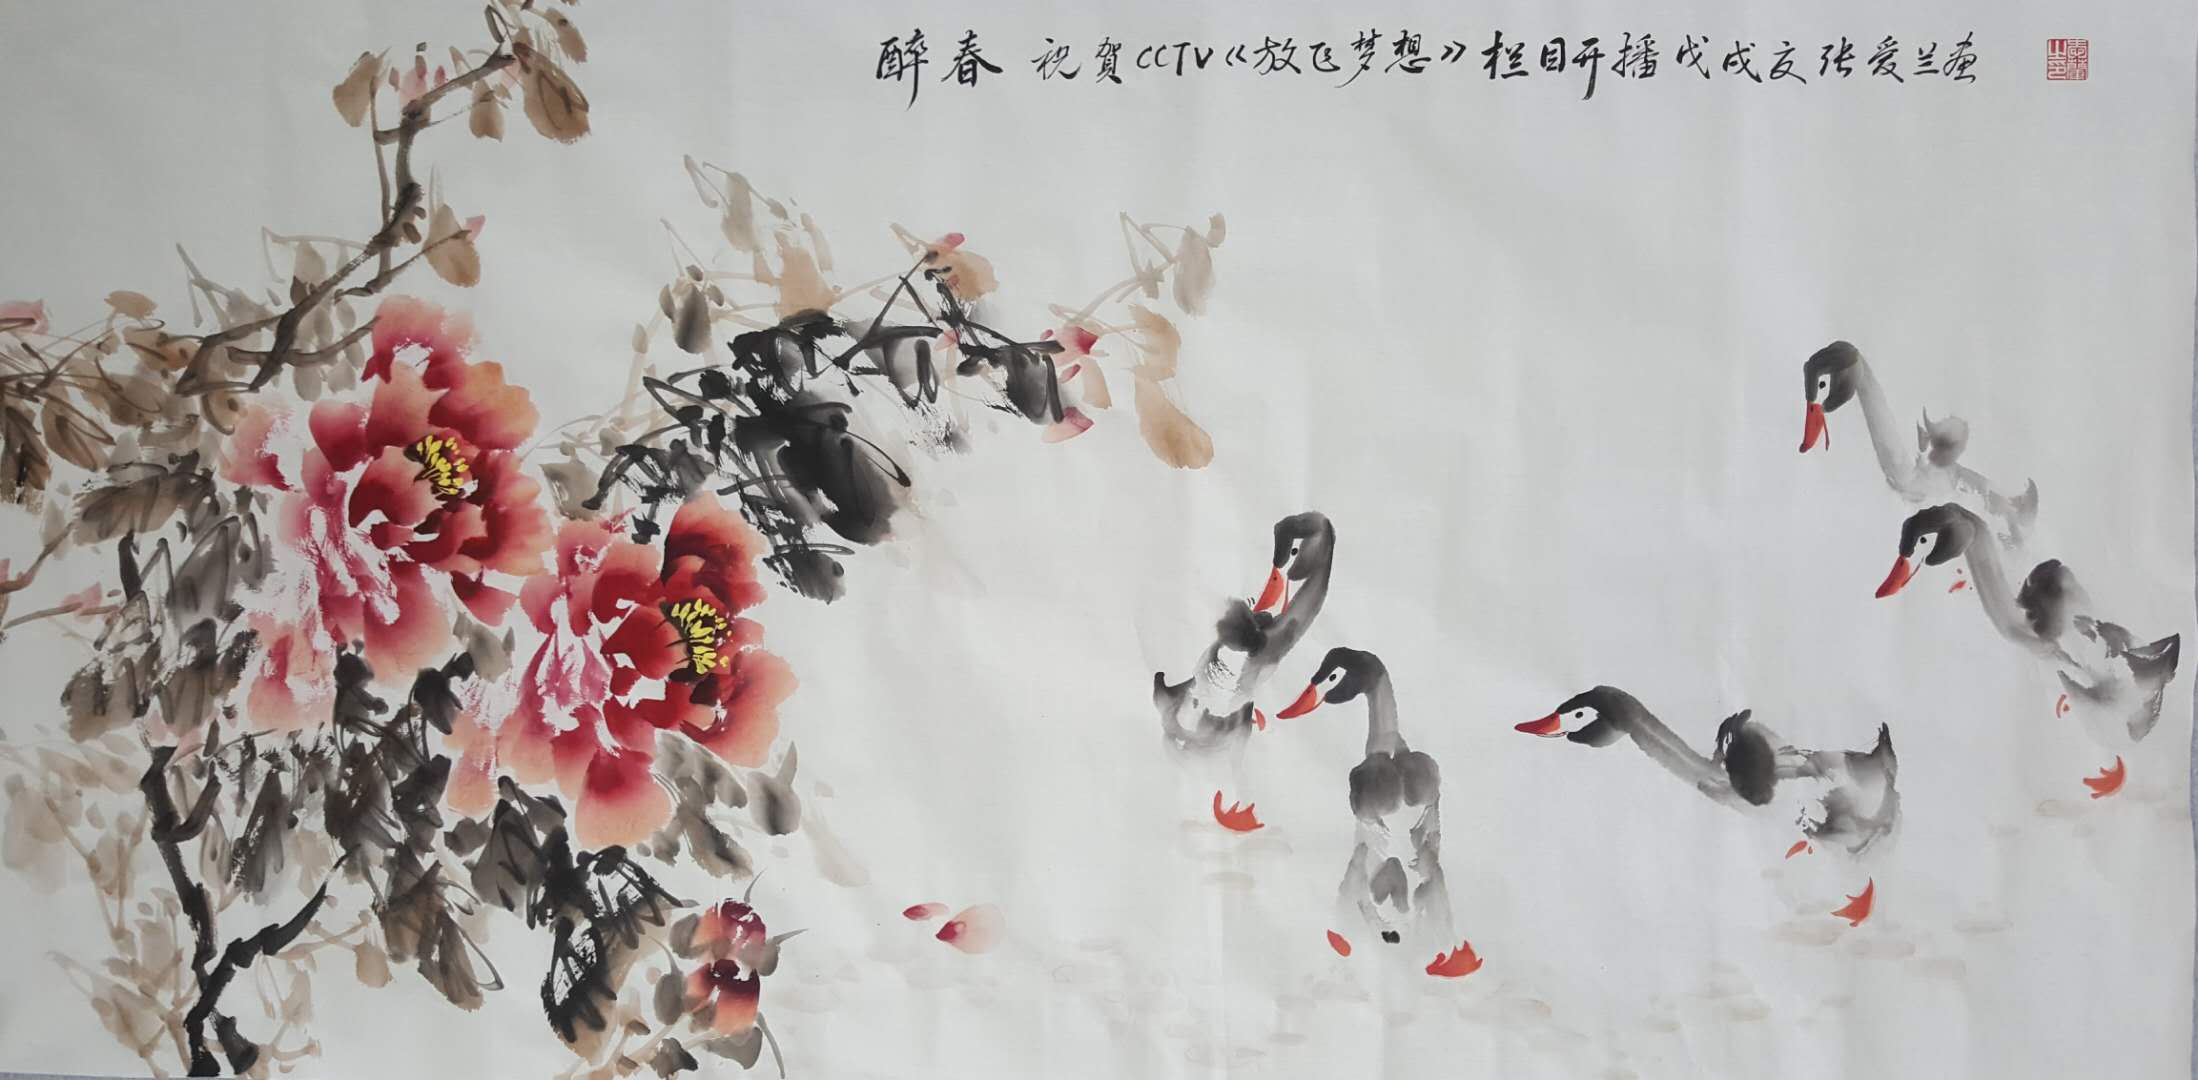 醉春 祝賀CCTV《放飞梦想》栏目开播戊戌夏张爱兰画